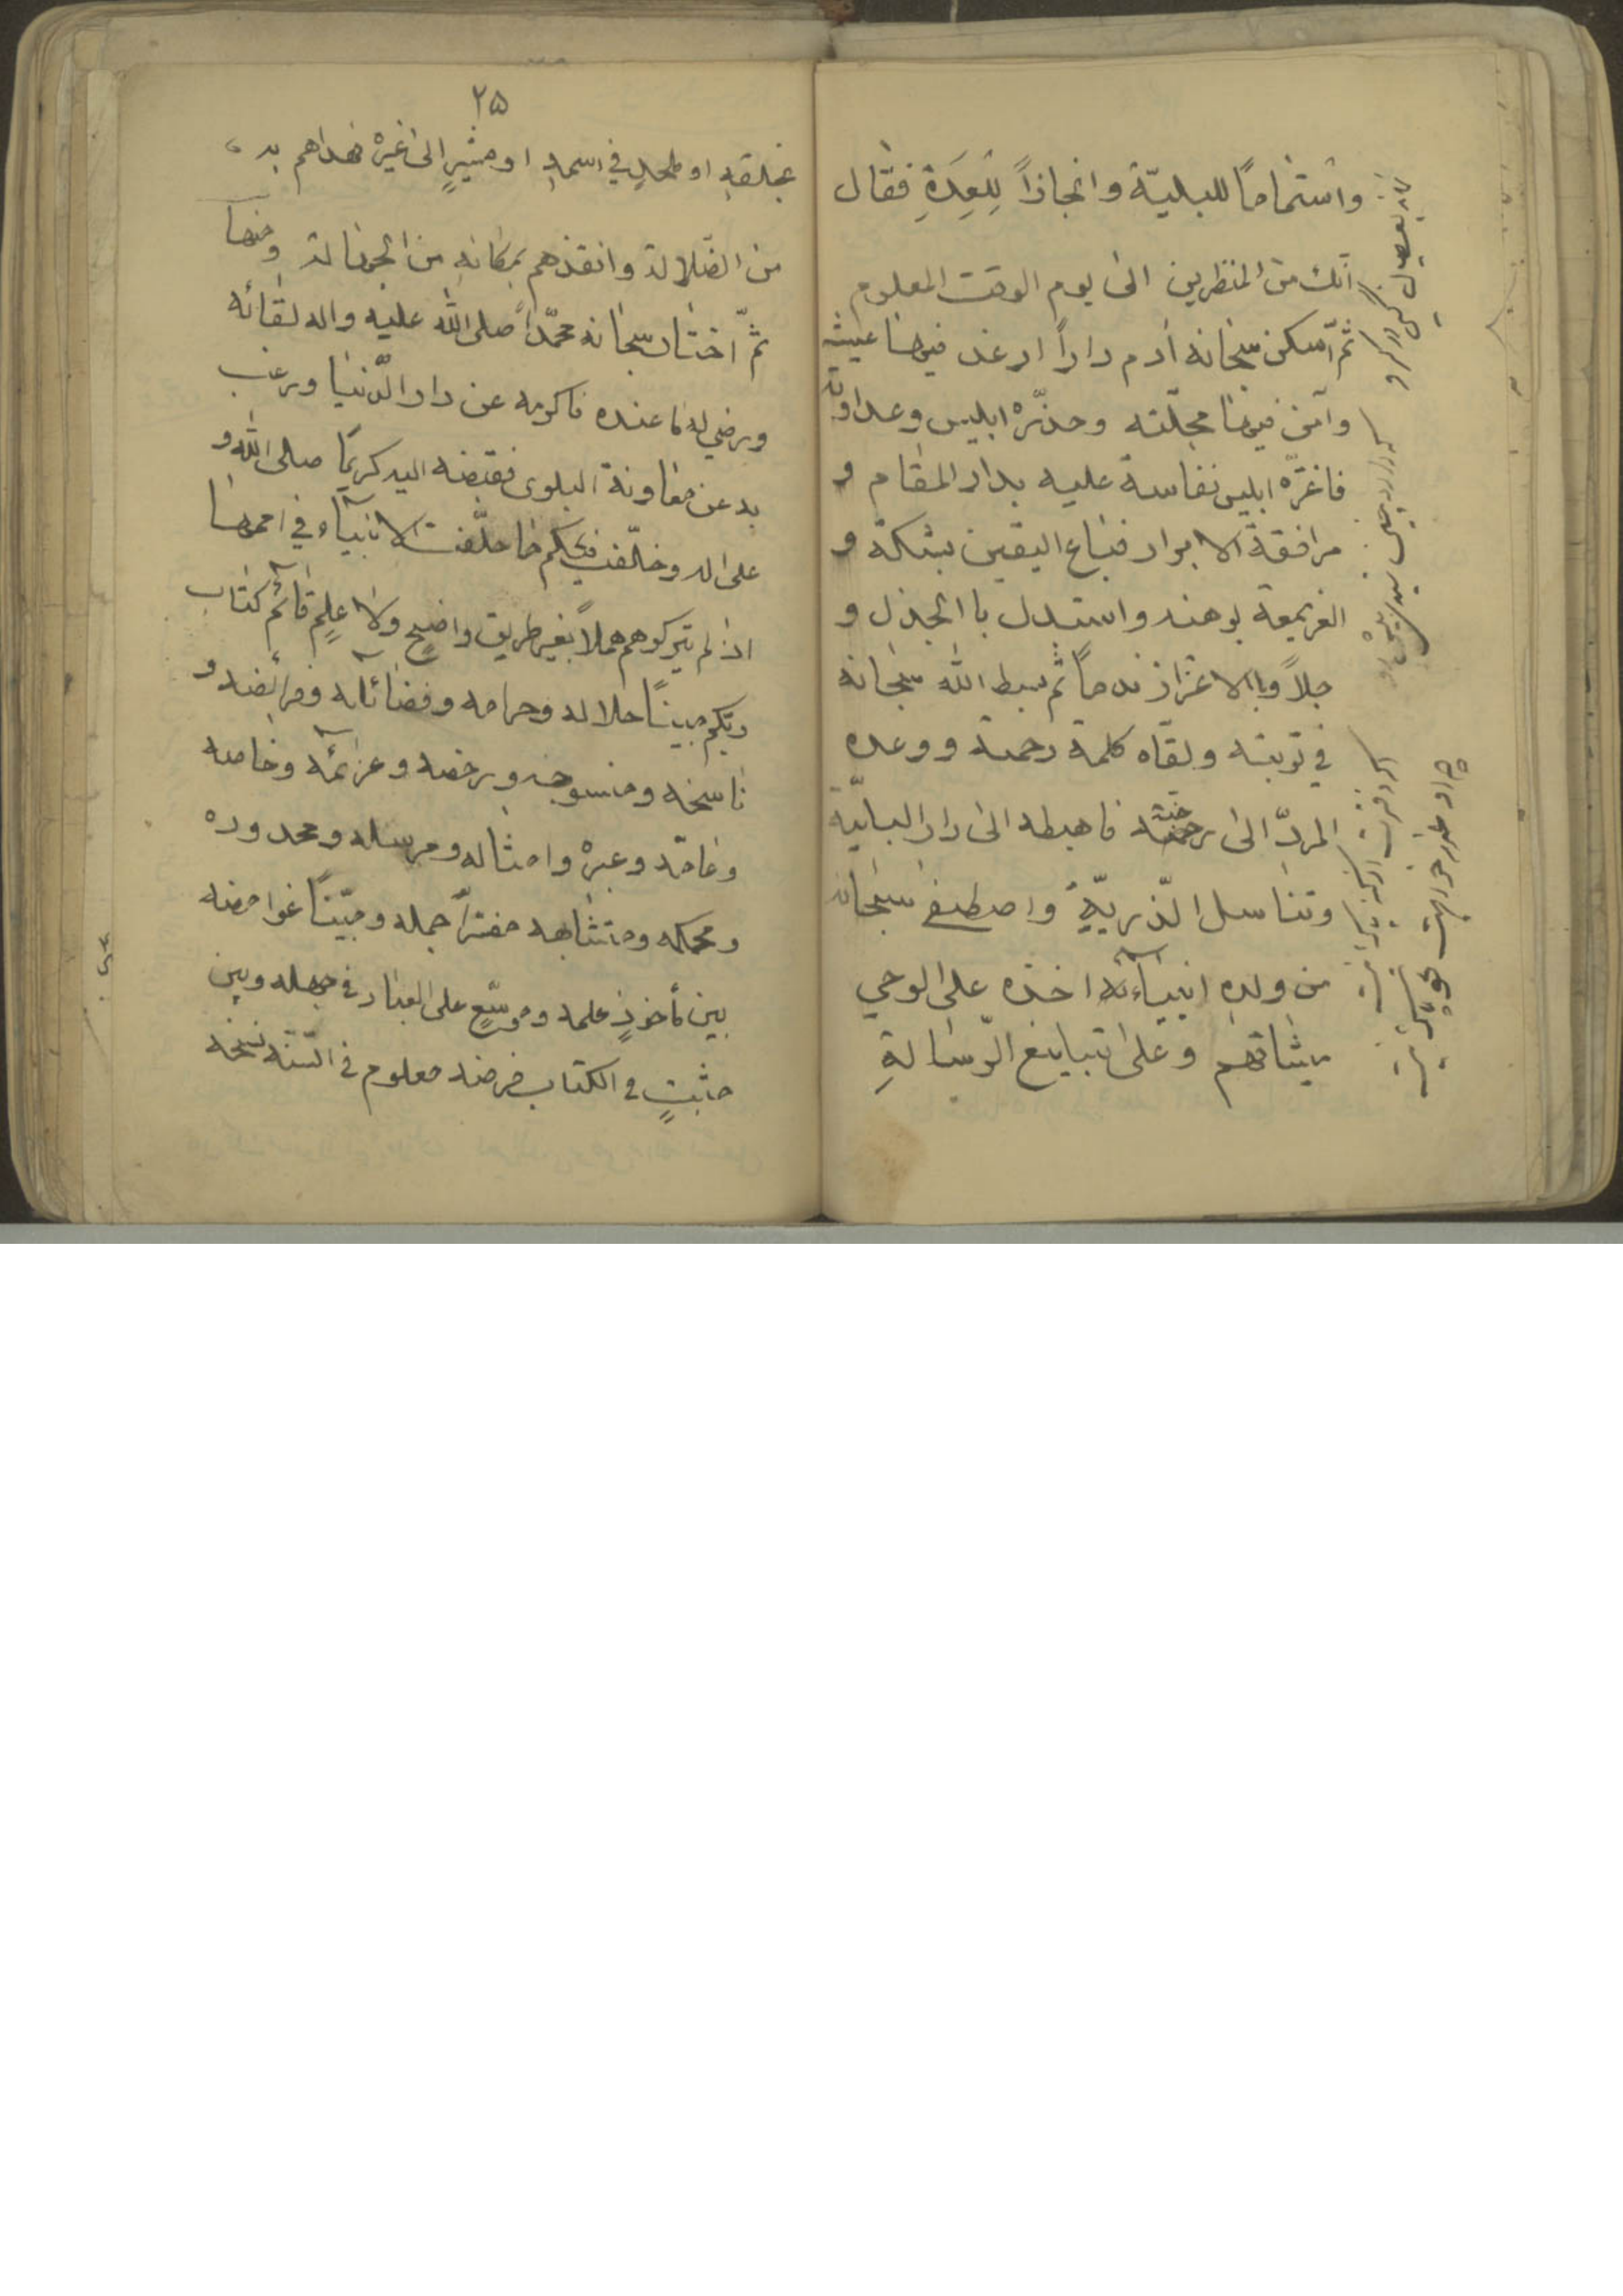 واستماما للبليّة وانجازاً لِلعِدَةِ فقال
انّك من المنظرين الى يوم الوقت المعلوم
ثم اسكن سبحانه ادم داراً ارغد فيها عيشه
وآمن فيها محلّته وحذّره ابليس وعداوته
فاغترّه ابليس نفاسة عليه بدار المقام و
مرافقة الابرار فباع اليقين بشكه و
العزيمة بوهنه واستبدل باالجذل و
جلاً وباالاغترار ندماً ثم بسط الله سبحانه
في توبته ولقاه كلمة رحمته ووعده
المردّ الى جنته فاهبطه الى دار البليّة
وتناسل الذّريّةِ واصطفى سبحانه
من ولده انبيآء اخذ على الوحي
ميثاقهم وعلى تبليغ الرّسالةِ
۲۵
بخلقهِ او ملحدٍ في اسمهِ او مشيرٍ الى غيره فهداهم به
من الضّلالة وانقذهم بمكانهِ من الجهالة ومنها
ثمّ اختار سبحانه محمّداً صلى الله عليه واله لقائه
ورضي له ما عنده فاكرمه عن دار الدّنيا ورغب
به عن مقاونة البلوى فقبضه اليه كريمًا صلى الله و
على اله وخلّف فيكم ما خلّفت الانبيآء في اممها
اذ لم يتركوهم هملاً بغير طريق واضحٍ ولا علمٍ قائم كتاب
ربكم مبينًا حلاله وحرامه وفضائله وفرائضه و
ناسخه ومنسوخه ورخصه وعزائمه وخاصه
وعامّه وعبره وامثاله ومرسله ومحدوده
ومحكمه ومتشابهه مفسّراً جمله ومبيّنًا غوامضه
بين مأخوذٍ علمه وموسّعٍ على العباد في جهله وبين
مثبتٍ في الكتاب فرضه معلوم في السّنّه نسخه